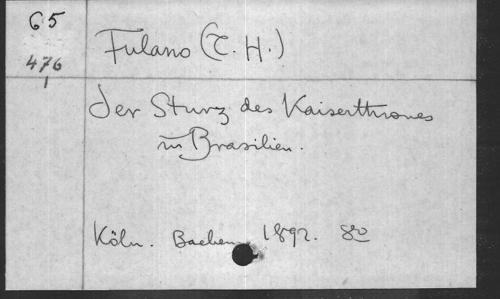 65
476
Fulano (C. H.)
der Sturz des Kaiserthrones
in Brasilien.
Köln. Bachem 1892. 8o